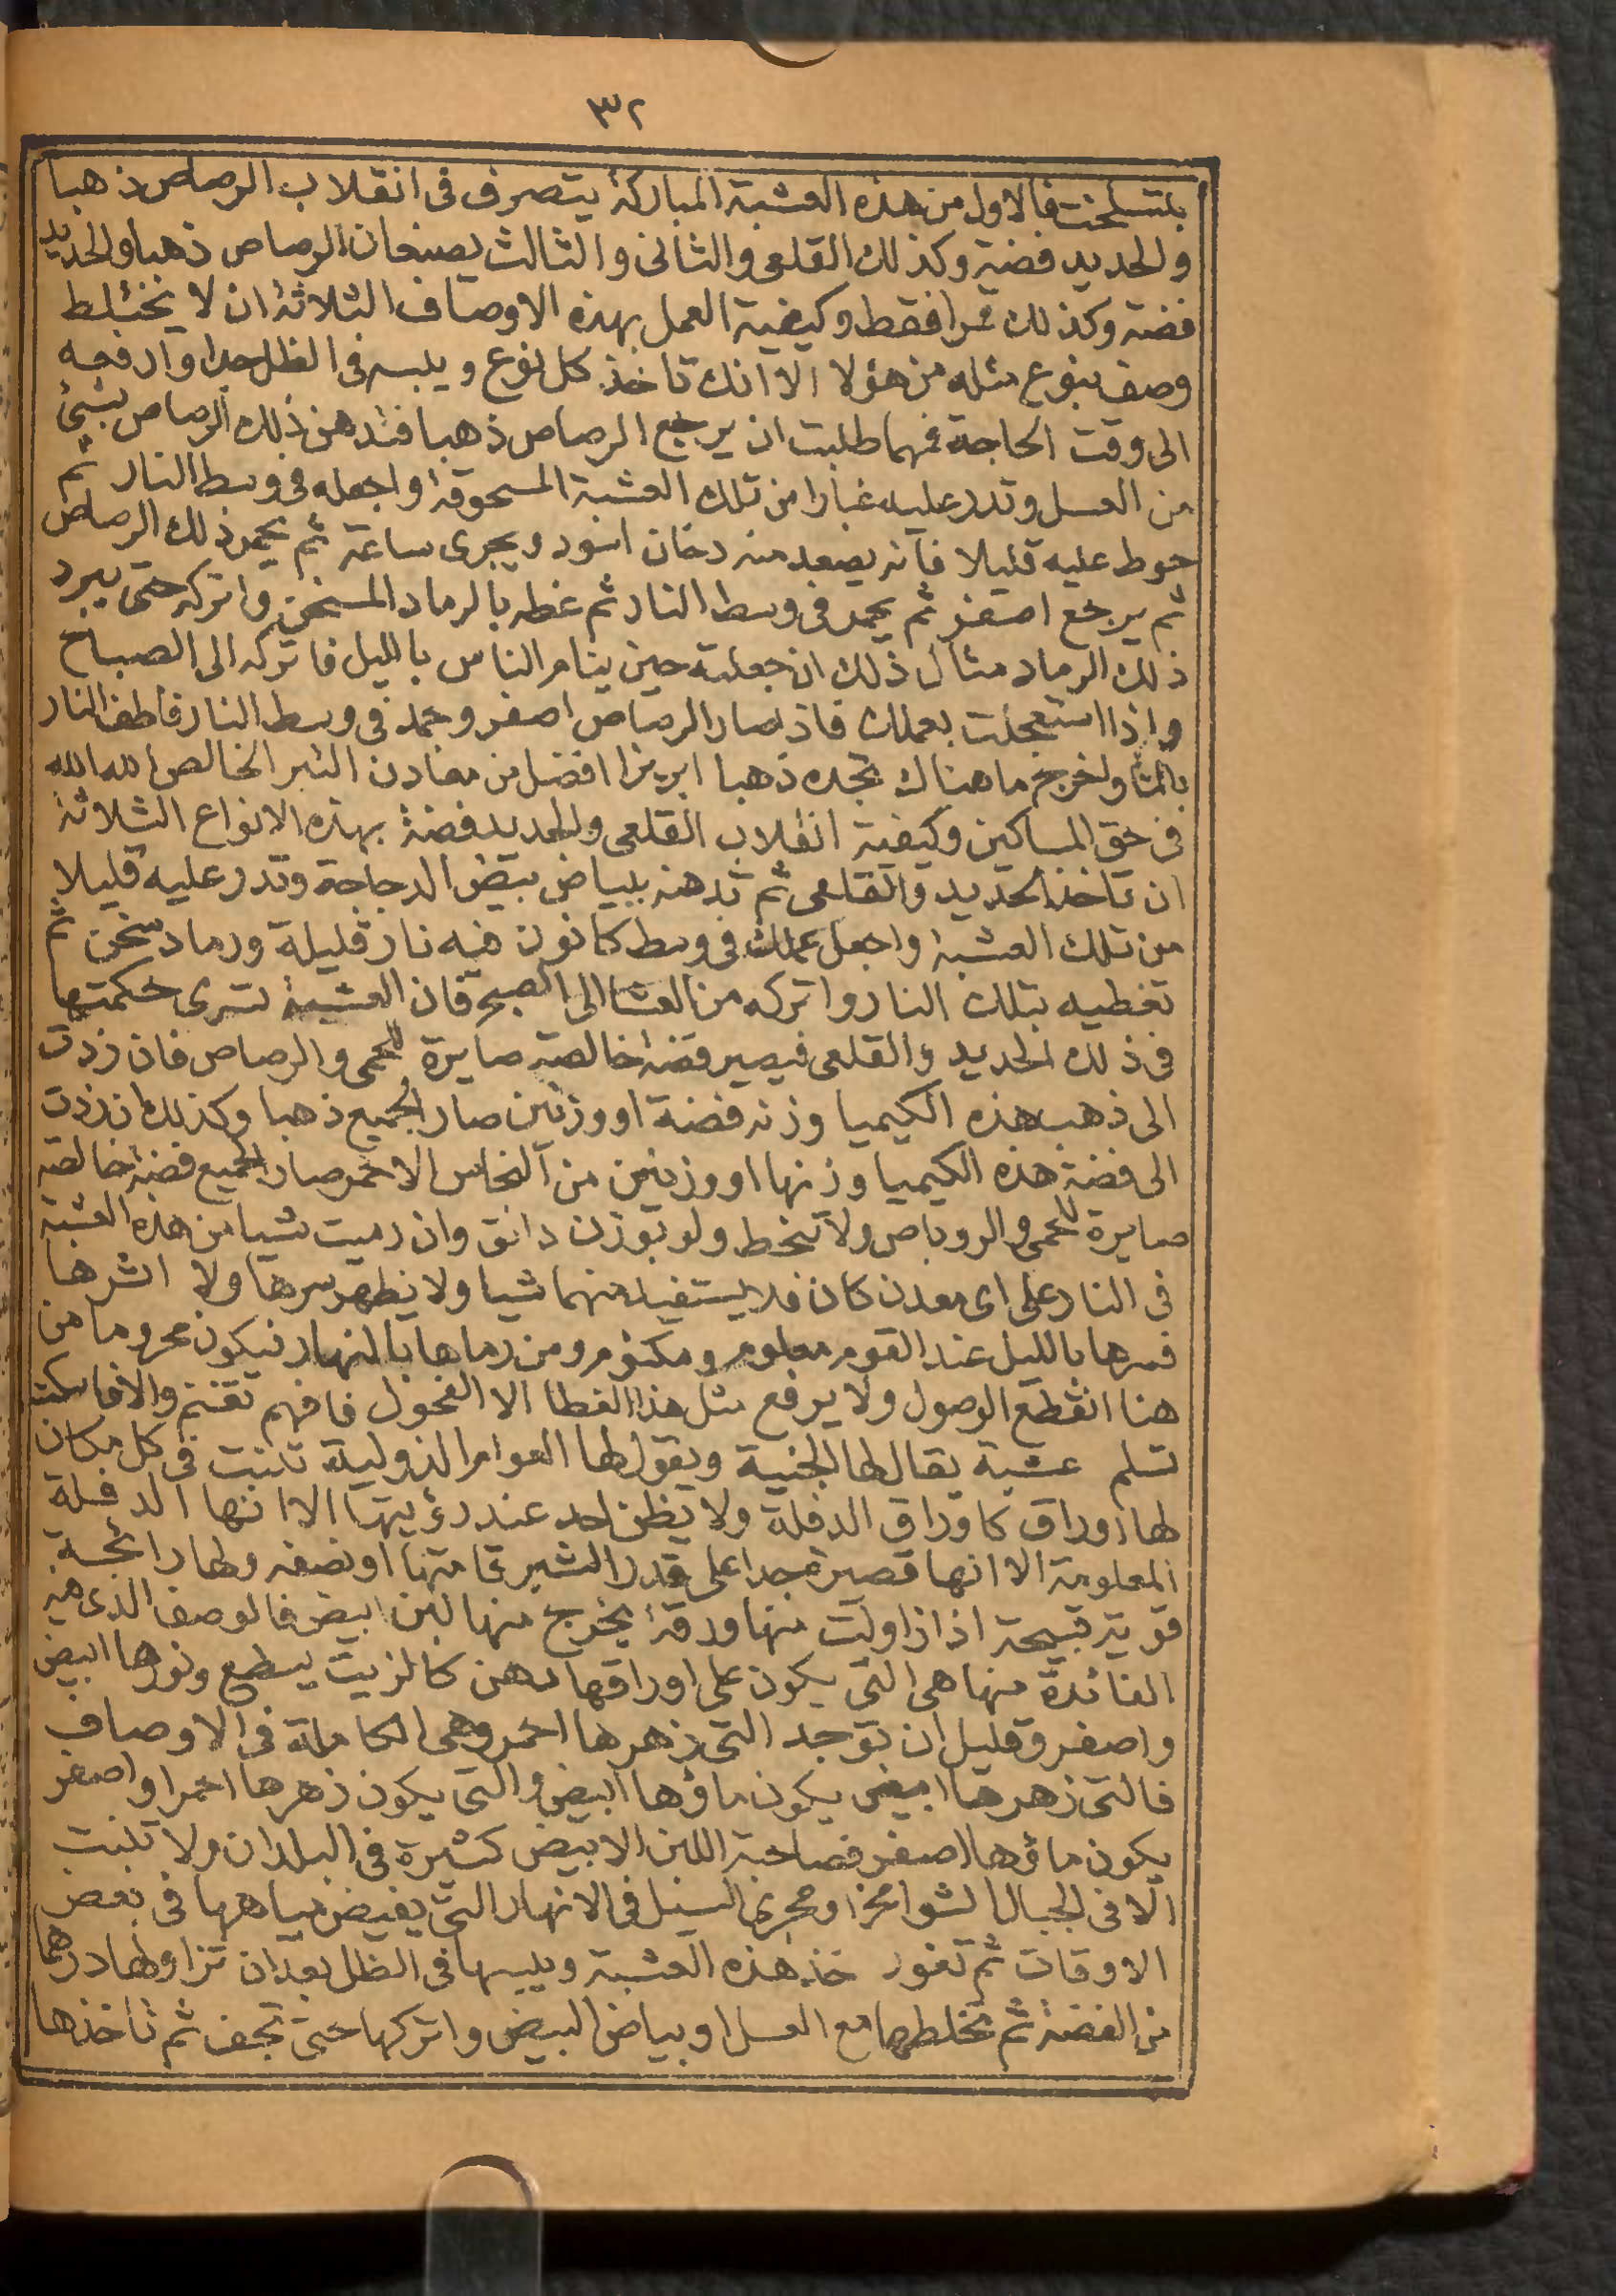 ٣٢
بلتسلخت فالاول من هذه العشبة المباركة يتصرف فى انقلاب الرصاص ذهبا
والحديد فضة وكذلك القلعى والثانى والثالث يصبغان الرصاص ذهبا والحديد
فضة وكذلك قمرا فقط وكيفية العمل بهذه الاوصاف الثلاثة ان لا يختلط
وصف بنوع مثله من هؤلا الا انك تاخذ كل نوع ويلبسه فى الظل جدا وادفعه
الى وقت الحاجة فمهما طلبت ان يرجع الرصاص ذهبا فتدهن ذلك الرصاص بشئ
من العسل وتدر عليه غبارا من تلك العشبة المسحوقة واجعله فى وسط النار ثم
حوط عليه قليلا فانه يصعد منه دخان اسود ويجرى ساعة ثم يحمر ذلك الرصاص
ثم يرجع اصفر ثم يجمد فى وسط النار ثم غطه بالرماد المسخن واتركه حتى يبرد
ذلك الرماد مثال ذلك ان جعلته حين ينام الناس بالليل فاتركه الى الصباح
واذا استعجلت بعملك فاذا صار الرصاص اصفر وجمد فى وسط النار فأطف النار
بالما واخرج ما هناك تجده ذهبا ابريزا افضل من معادن التبر الخالص الله الله
فى حق المساكين وكيفية انقلاب القلعى والحديد فضة بهذه الانواع الثلاثة
ان تاخذ الحديد والقلعى ثم تدهنه ببياض بيض الدجاجة وتدر عليه قليلا
من تلك العشبة واجعل عملك فى وسط كانون فيه نار قليلة ورماد سخن ثم
تغطيه بتلك النار واتركه من العشا الى الصبح فان العشبة تسرى حكمتها
فى ذلك الحديد والقلعى فيصير فضة خالصة صابرة للحمى والرصاص فان زدت
الى ذهب هذه الكيميا وزنه فضة او وزنين صار الجميع ذهبا وكذلك ان زدت
الى فضة هذه الكيميا وزنها او وزنين من النحاس الاحمر صار الجميع فضة خالصة
صابرة للحمى والروباص ولا تنحط ولو بوزن دانق وان رميت شيا من هذه العشبة
فى النار على اى معدن كان فلا يستفيد منهما شيا ولا يظهر سرها ولا اثرها
فسرها بالليل عند القوم معلوم ومكتوم ومن رماها بالنهار فيكون محروما من
هنا انقطع الوصول ولا يرفع مثل هذا الغطا الا الفحول فافهم تغنم والا فاسكت
تسلم عشبة يقال لها الجنية ويقول لها العوام الذولية تنبت فى كل مكان
لها اوراق كاوراق الدفلة ولا يظن احد عند رؤيتها الا انها الدفلة
المعلومة الا انها قصيرة جدا على قدر الشبر قامتها او نصفه ولها رائحة
قوية قبيحة اذا زاولت منها ورقة يخرج منها لبن ابيض فالوصف الذى فيه
الفائدة منها هى التى يكون على اوراقها دهن كالزيت يسطع ونورها ابيض
واصفر وقليل ان توجد التى زهرها احمر وهى الكاملة فى الاوصاف
فالتى زهرها ابيض يكون ماؤها ابيض والتى يكون زهرها احمرا واصفر
يكون ماؤها اصفر فصاحبة اللبن الابيض كثيرة فى البلدان ولا تنبت
الا فى الجبال الشوامخ او مجرى السيل فى الانهار التى يفيض مياهها فى بعض
الاوقات ثم تغور خذ هذه العشبة ويبسها فى الظل بعد ان تزاولها درهما
من الفضة ثم تخلطها مع العسل او بياض البيض واتركها حتى تجف ثم تاخذها